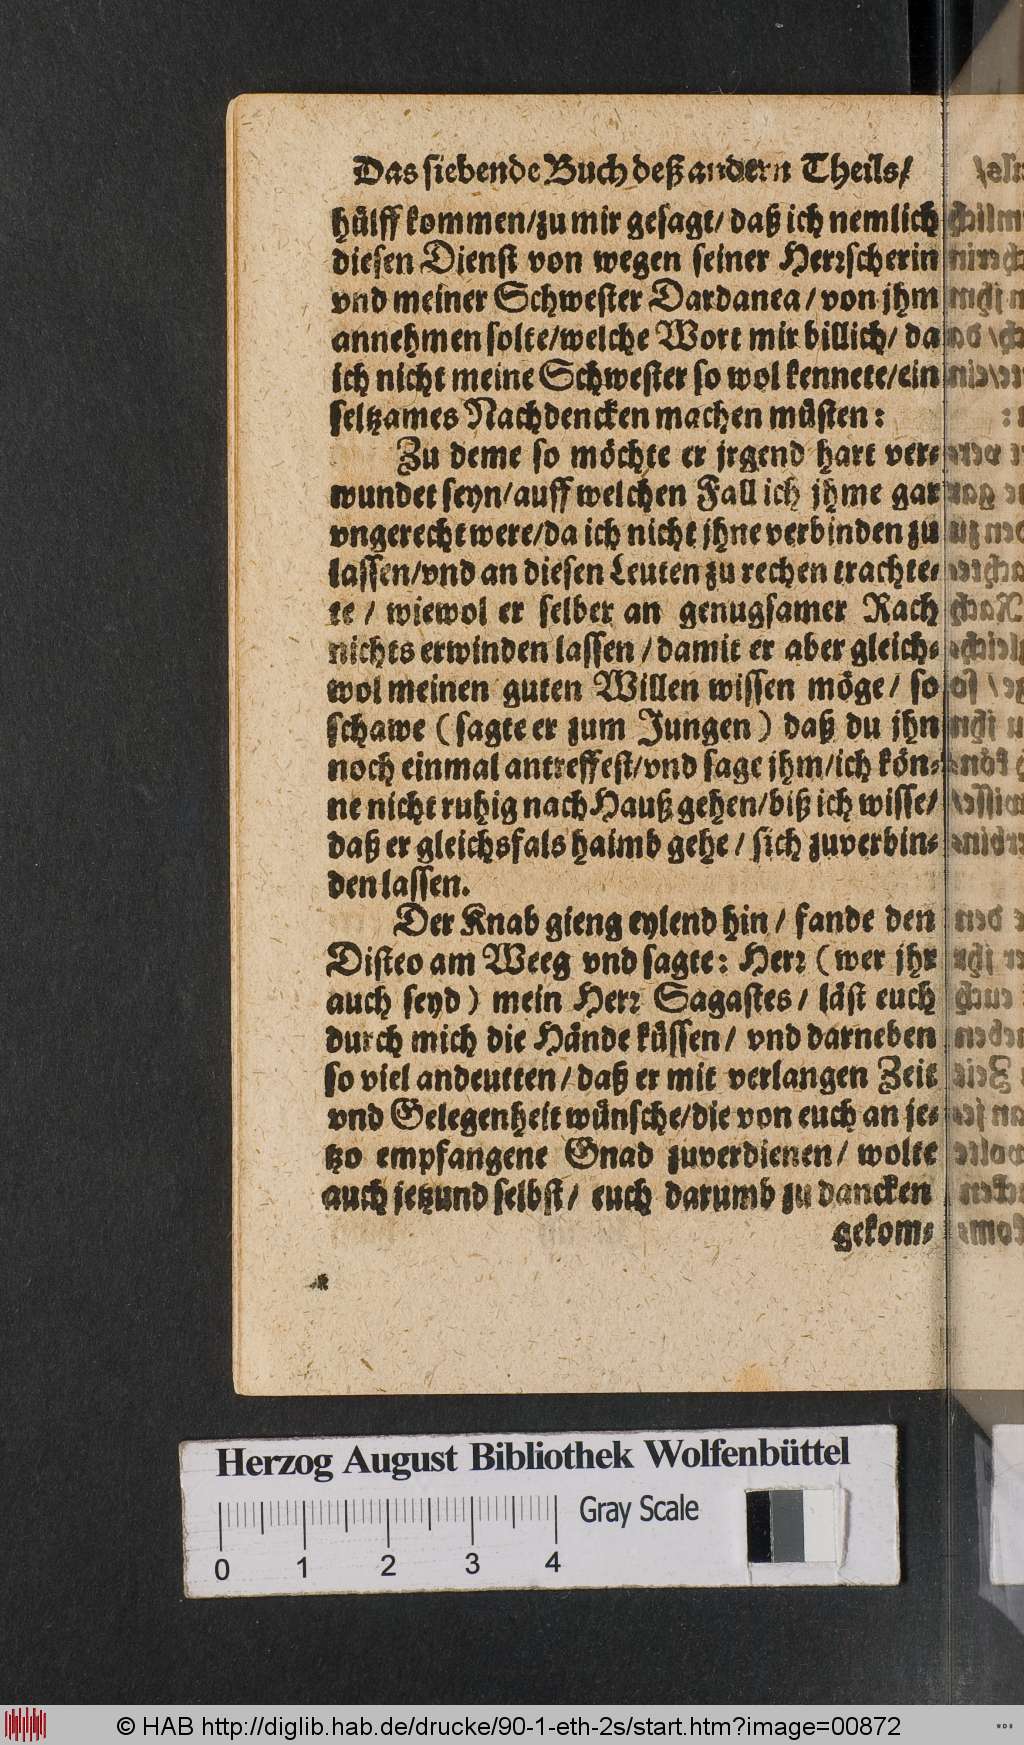 Das siebende Buch deß andern Theils/
hülff kommen/zu mir gesagt/ daß ich nemlich
diesen Dienst von wegen seiner Herrscherin
vnd meiner Schwester Dardanea / von jhm
annehmen solte/welche Wort mir billich/ da
ich nicht meine Schwester so wol kennete/ein
seltzames Nachdencken machen müsten:
Zu deme so möchte er jrgend hart ver-
wundet seyn/auff welchen Fall ich jhme gar
vngerecht were/da ich nicht jhne verbinden zu
lassen/vnd an diesen Leuten zu rechen trachte-
te / wiewol er selber an genugsamer Rach
nichts erwinden lassen / damit er aber gleich-
wol meinen guten Willen wissen möge/ so
schawe ( sagte er zum Jungen ) daß du jhn
noch einmal antreffest/vnd sage jhm/ich kön-
ne nicht ruhig nach Hauß gehen/biß ich wisse/
daß er gleichsfals haimb gehe / sich zuverbin-
den lassen.
Der Knab gieng eylend hin / fande den
Disteo am Weeg vnd sagte: Herr ( wer jhr
auch seyd ) mein Herr Sagastes / läst euch
durch mich die Hände küssen/ vnd darneben
so viel andeutten / daß er mit verlangen Zeit
vnd Gelegenheit wünsche/die von euch an je-
tzo empfangene Gnad zuverdienen/ wolte
auch jetzund selbst/ euch darumb zu dancken
gekom-
Herzog August Bibliothek Wolfenbüttel
Gray Scale
0 1 2 3 4
© HAB http://diglib.hab.de/drucke/90-1-eth-2s/start.htm?image=00872